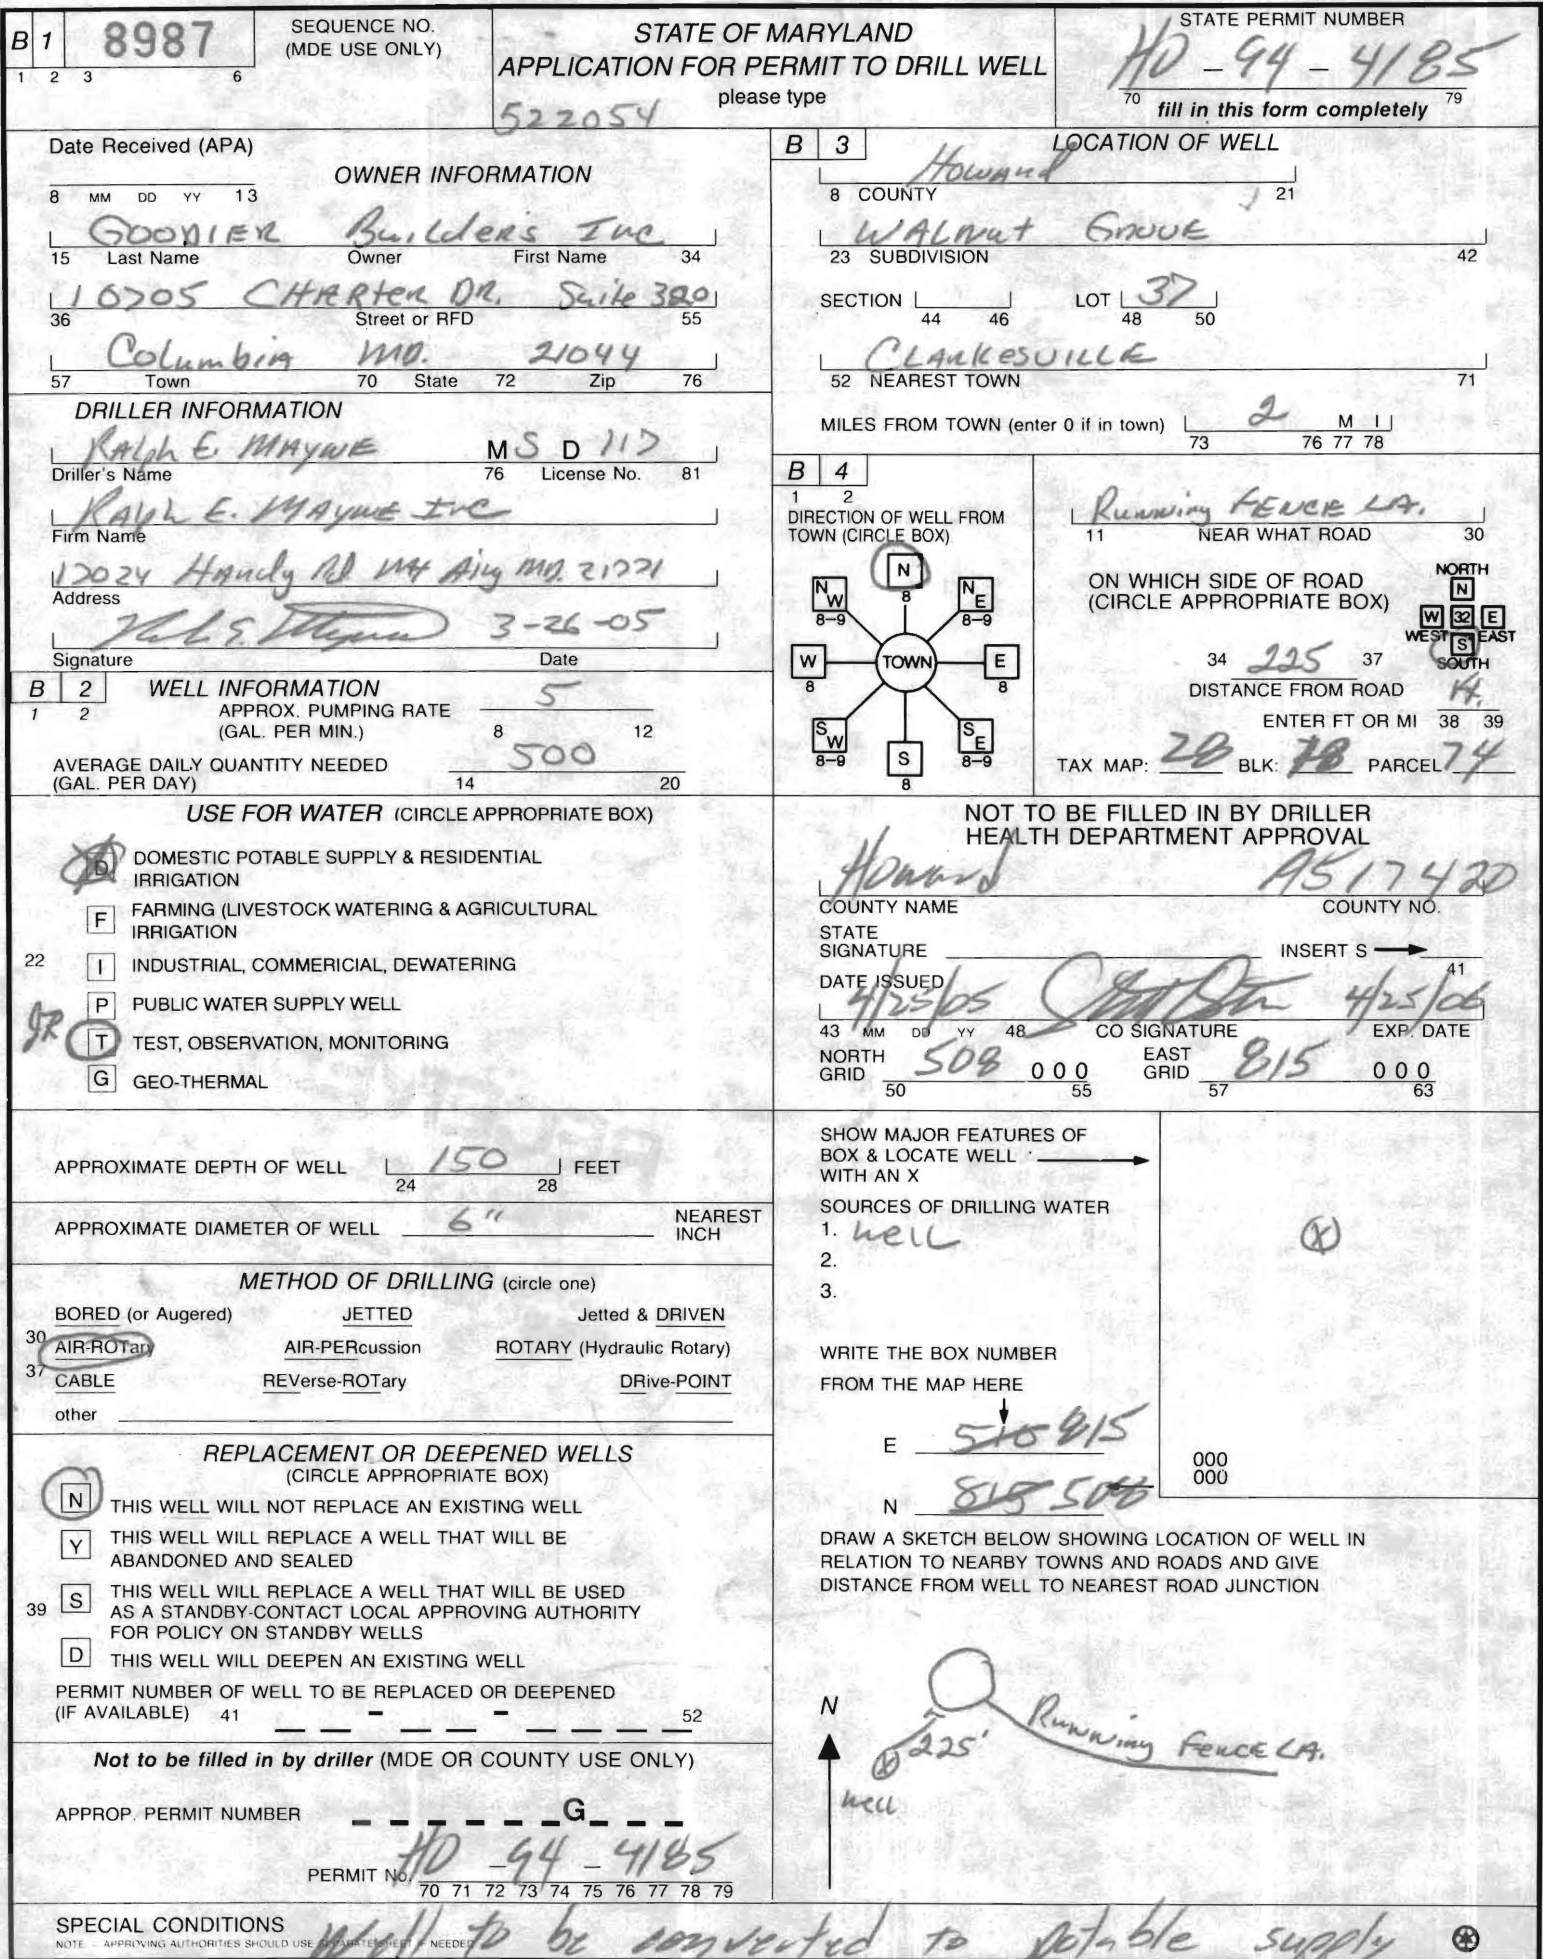 B 1 8987 SEQUENCE NO. (MDE USE ONLY)
1 2 3 6
STATE OF MARYLAND
APPLICATION FOR PERMIT TO DRILL WELL
please type
522054
STATE PERMIT NUMBER
HO - 94 - 4185
70 fill in this form completely 79
Date Received (APA)
8 MM DD YY 13
OWNER INFORMATION
GOODIER Builders Inc
15 Last Name Owner First Name 34
10705 CHARTER DR. Suite 320
36 Street or RFD 55
Columbia MD. 21044
57 Town 70 State 72 Zip 76
DRILLER INFORMATION
Ralph E. MAYNE M S D 117
Driller's Name 76 License No. 81
Ralph E. MAYNE Inc
Firm Name
17024 Handy Rd Mt Airy MD. 21771
Address
3-26-05
Signature Date
B 2 WELL INFORMATION
1 2
APPROX. PUMPING RATE
(GAL. PER MIN.) 5
8 12
AVERAGE DAILY QUANTITY NEEDED
(GAL. PER DAY) 500
14 20
USE FOR WATER (CIRCLE APPROPRIATE BOX)
D DOMESTIC POTABLE SUPPLY & RESIDENTIAL
IRRIGATION
F FARMING (LIVESTOCK WATERING & AGRICULTURAL
IRRIGATION
22 I INDUSTRIAL, COMMERICIAL, DEWATERING
P PUBLIC WATER SUPPLY WELL
T TEST, OBSERVATION, MONITORING
G GEO-THERMAL
APPROXIMATE DEPTH OF WELL 150 FEET
24 28
APPROXIMATE DIAMETER OF WELL 6" NEAREST
INCH
METHOD OF DRILLING (circle one)
BORED (or Augered) JETTED Jetted & DRIVEN
30 AIR-ROTary AIR-PERcussion ROTARY (Hydraulic Rotary)
37 CABLE REVerse-ROTary DRive-POINT
other
REPLACEMENT OR DEEPENED WELLS
(CIRCLE APPROPRIATE BOX)
N THIS WELL WILL NOT REPLACE AN EXISTING WELL
Y THIS WELL WILL REPLACE A WELL THAT WILL BE
ABANDONED AND SEALED
39 S THIS WELL WILL REPLACE A WELL THAT WILL BE USED
AS A STANDBY-CONTACT LOCAL APPROVING AUTHORITY
FOR POLICY ON STANDBY WELLS
D THIS WELL WILL DEEPEN AN EXISTING WELL
PERMIT NUMBER OF WELL TO BE REPLACED OR DEEPENED
(IF AVAILABLE) 41 - - 52
Not to be filled in by driller (MDE OR COUNTY USE ONLY)
APPROP. PERMIT NUMBER G
PERMIT No. HO - 94 - 4185
70 71 72 73 74 75 76 77 78 79
B 3 LOCATION OF WELL
Howard
8 COUNTY 21
WALNUT GROVE
23 SUBDIVISION 42
SECTION LOT 37
44 46 48 50
CLARKESVILLE
52 NEAREST TOWN 71
MILES FROM TOWN (enter 0 if in town) 2 M I
73 76 77 78
B 4
1 2
DIRECTION OF WELL FROM
TOWN (CIRCLE BOX)
N
8
NW NE
8-9 8-9
W TOWN E
8 8
SW SE
8-9 S 8-9
8
Running FENCE LA.
11 NEAR WHAT ROAD 30
ON WHICH SIDE OF ROAD
(CIRCLE APPROPRIATE BOX)
NORTH
N
W 32 E
WEST S EAST
SOUTH
34 225 37
DISTANCE FROM ROAD
ENTER FT OR MI ft.
38 39
TAX MAP: 28 BLK: PARCEL 74
NOT TO BE FILLED IN BY DRILLER
HEALTH DEPARTMENT APPROVAL
Howard A517420
COUNTY NAME COUNTY NO.
STATE
SIGNATURE INSERT S
41
DATE ISSUED
4/25/05 4/25/06
43 MM DD YY 48 CO SIGNATURE EXP. DATE
NORTH
GRID 508 000 EAST
GRID 815 000
50 55 57 63
SHOW MAJOR FEATURES OF
BOX & LOCATE WELL
WITH AN X
X
SOURCES OF DRILLING WATER
1. well
2.
3.
WRITE THE BOX NUMBER
FROM THE MAP HERE
E 510 815
N 815 508
000
000
DRAW A SKETCH BELOW SHOWING LOCATION OF WELL IN
RELATION TO NEARBY TOWNS AND ROADS AND GIVE
DISTANCE FROM WELL TO NEAREST ROAD JUNCTION
N
Running FENCE LA.
225'
X
well
SPECIAL CONDITIONS Well to be converted to potable supply
NOTE - APPROVING AUTHORITIES SHOULD USE SEPARATE SHEET IF NEEDED